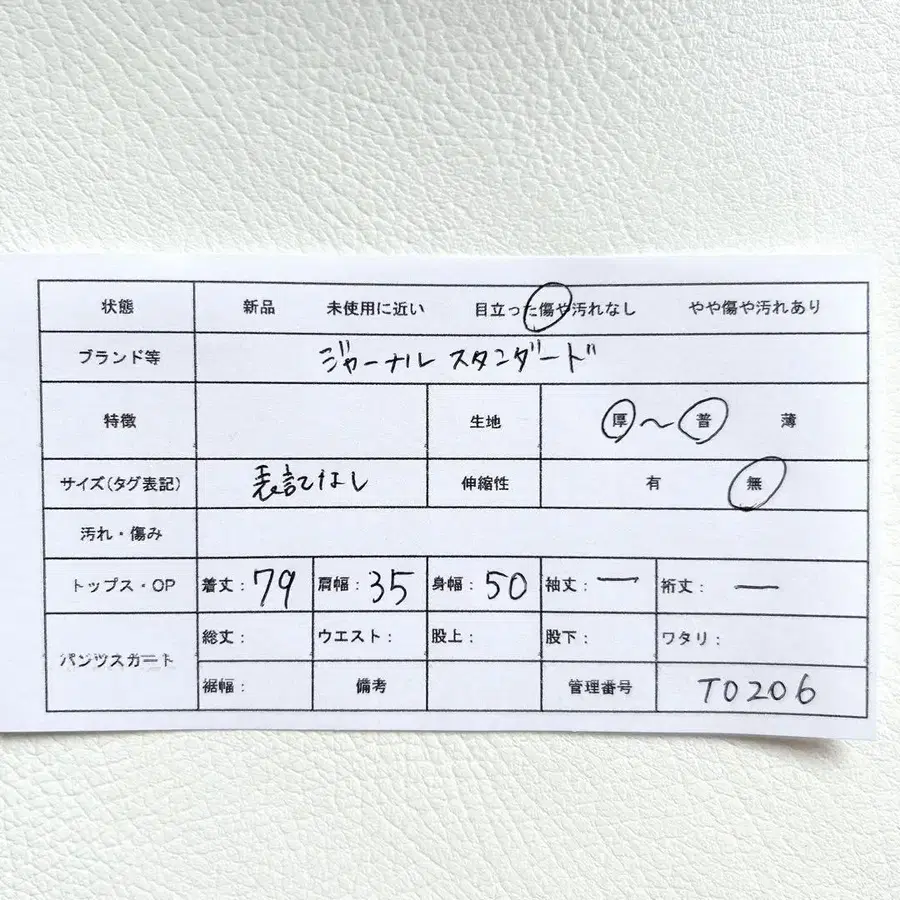 状態 新品 未使用に近い 目立った傷や汚れなし やや傷や汚れあり
ブランド等 ジャーナル スタンダード
特徴 生地 厚〜普 薄
サイズ(タグ表記) 表記なし 伸縮性 有 無
汚れ・傷み
トップス・OP 着丈：79 肩幅：35 身幅：50 袖丈：ー 裄丈：ー
パンツスカート 総丈： ウエスト： 股上： 股下： ワタリ：
裾幅： 備考 管理番号 T0206